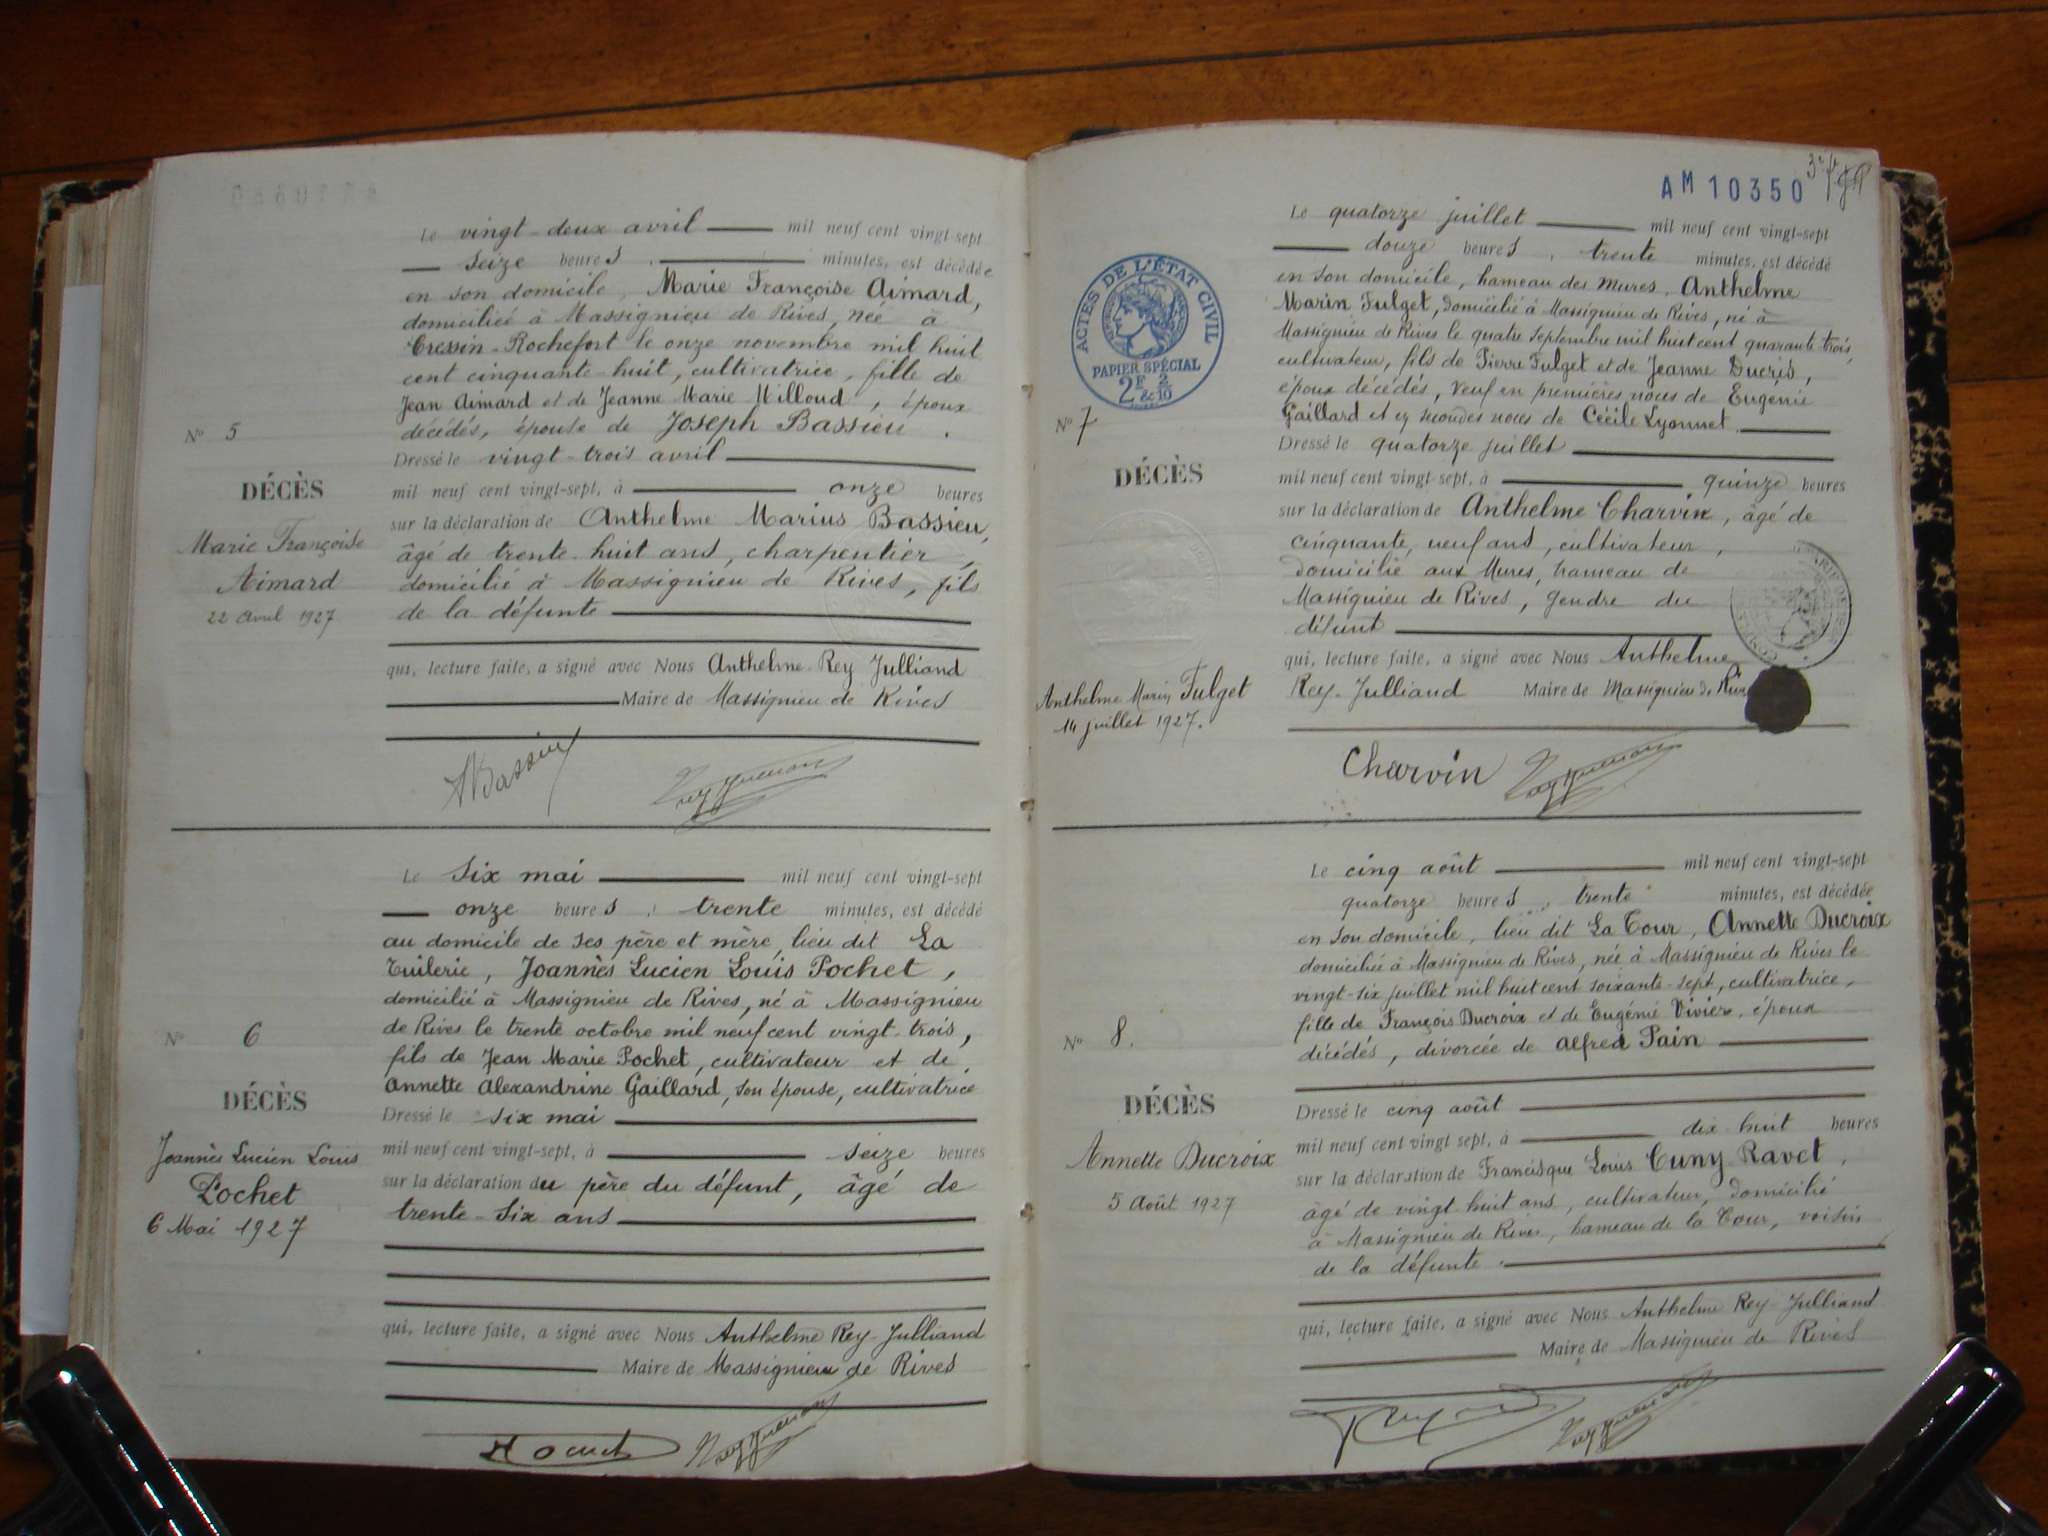 Le vingt-deux avril mil neuf cent vingt-sept
seize heures, minutes, est décédée
en son domicile, Marie Françoise Aimard,
domiciliée à Massignieu de Rives, née à
Cressin-Rochefort le onze novembre mil huit
cent cinquante-huit, cultivatrice, fille de
Jean Aimard et de Jeanne Marie Milloud, époux
décédés, épouse de Joseph Bassieu.
N° 5
Dressé le vingt-trois avril
DÉCÈS
mil neuf cent vingt-sept, à onze heures
sur la déclaration de Anthelme Marius Bassieu,
Marie Françoise
Aimard
22 avril 1927
âgé de trente-huit ans, charpentier,
domicilié à Massignieu de Rives, fils
de la défunte
qui, lecture faite, a signé avec Nous Anthelme Rey Julliand
Maire de Massignieu de Rives
ABassieu
Le six mai mil neuf cent vingt-sept
onze heures, trente minutes, est décédé
au domicile de ses père et mère, lieu dit La
Tuilerie, Joannès Lucien Louis Pochet,
domicilié à Massignieu de Rives, né à Massignieu
de Rives le trente octobre mil neuf cent vingt-trois,
N° 6
fils de Jean Marie Pochet, cultivateur et de
Annette Alexandrine Gaillard, son épouse, cultivatrice
DÉCÈS
Dressé le six mai
mil neuf cent vingt-sept, à seize heures
Joannès Lucien Louis
Pochet
6 Mai 1927
sur la déclaration du père du défunt, âgé de
trente-six ans
qui, lecture faite, a signé avec Nous Anthelme Rey-Julliand
Maire de Massignieu de Rives
AM 10350
Le quatorze juillet mil neuf cent vingt-sept
douze heures, trente minutes, est décédé
en son domicile, hameau des Mures, Anthelme
Marin Fulget, domicilié à Massignieu de Rives, né à
Massignieu de Rives le quatre septembre mil huit cent quarante-trois,
cultivateur, fils de Pierre Fulget et de Jeanne Ducris,
époux décédés, veuf en premières noces de Eugénie
Gaillard et en secondes noces de Cécile Lyonnet.
ACTES DE L'ÉTAT CIVIL
PAPIER SPÉCIAL
2F & 2/10
N° 7
Dressé le quatorze juillet
DÉCÈS
mil neuf cent vingt-sept, à quinze heures
sur la déclaration de Anthelme Charvin, âgé de
cinquante-neuf ans, cultivateur,
domicilié aux Mures, hameau de
Massignieu de Rives, gendre du
défunt
qui, lecture faite, a signé avec Nous Anthelme
Rey-Julliand Maire de Massignieu de Rives
Anthelme Marin Fulget
14 juillet 1927.
Charvin
Le cinq août mil neuf cent vingt-sept
quatorze heures, trente minutes, est décédée
en son domicile, lieu dit La Tour, Annette Ducroix
domiciliée à Massignieu de Rives, née à Massignieu de Rives le
vingt-six juillet mil huit cent soixante-sept, cultivatrice,
fille de François Ducroix et de Eugénie Vivier, époux
décédés, divorcée de Alfred Pain
N° 8.
DÉCÈS
Dressé le cinq août
mil neuf cent vingt sept, à dix-huit heures
Annette Ducroix
5 Août 1927
sur la déclaration de Francisque Louis Cuny Ravet,
âgé de vingt-huit ans, cultivateur, domicilié
à Massignieu de Rives, hameau de la Tour, voisin
de la défunte.
qui, lecture faite, a signé avec Nous Anthelme Rey-Julliand
Maire de Massignieu de Rives